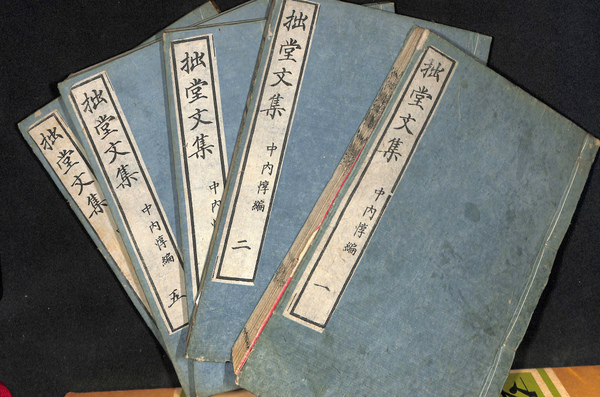 拙堂文集
中内惇編
一
拙堂文集
中内惇編
二
拙堂文集
中内
拙堂文集
中内惇編
五
拙堂文集